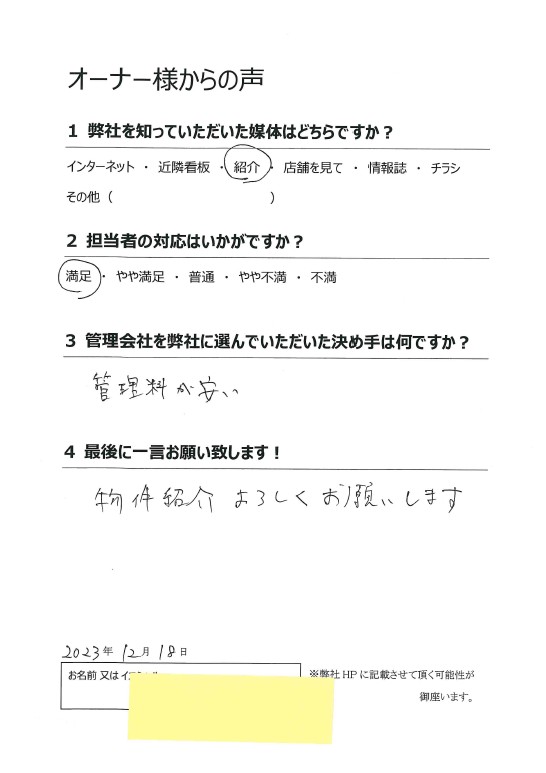 オーナー様からの声
1 弊社を知っていただいた媒体はどちらですか？
インターネット ・ 近隣看板 ・ 紹介 ・ 店舗を見て ・ 情報誌 ・ チラシ
その他（　　　　　　　　　　　　）
2 担当者の対応はいかがですか？
満足 ・ やや満足 ・ 普通 ・ やや不満 ・ 不満
3 管理会社を弊社に選んでいただいた決め手は何ですか？
管理料が安い
4 最後に一言お願い致します！
物件紹介よろしくお願いします
2023年 12月 18日
お名前 又は
※弊社 HP に記載させて頂く可能性が
御座います。